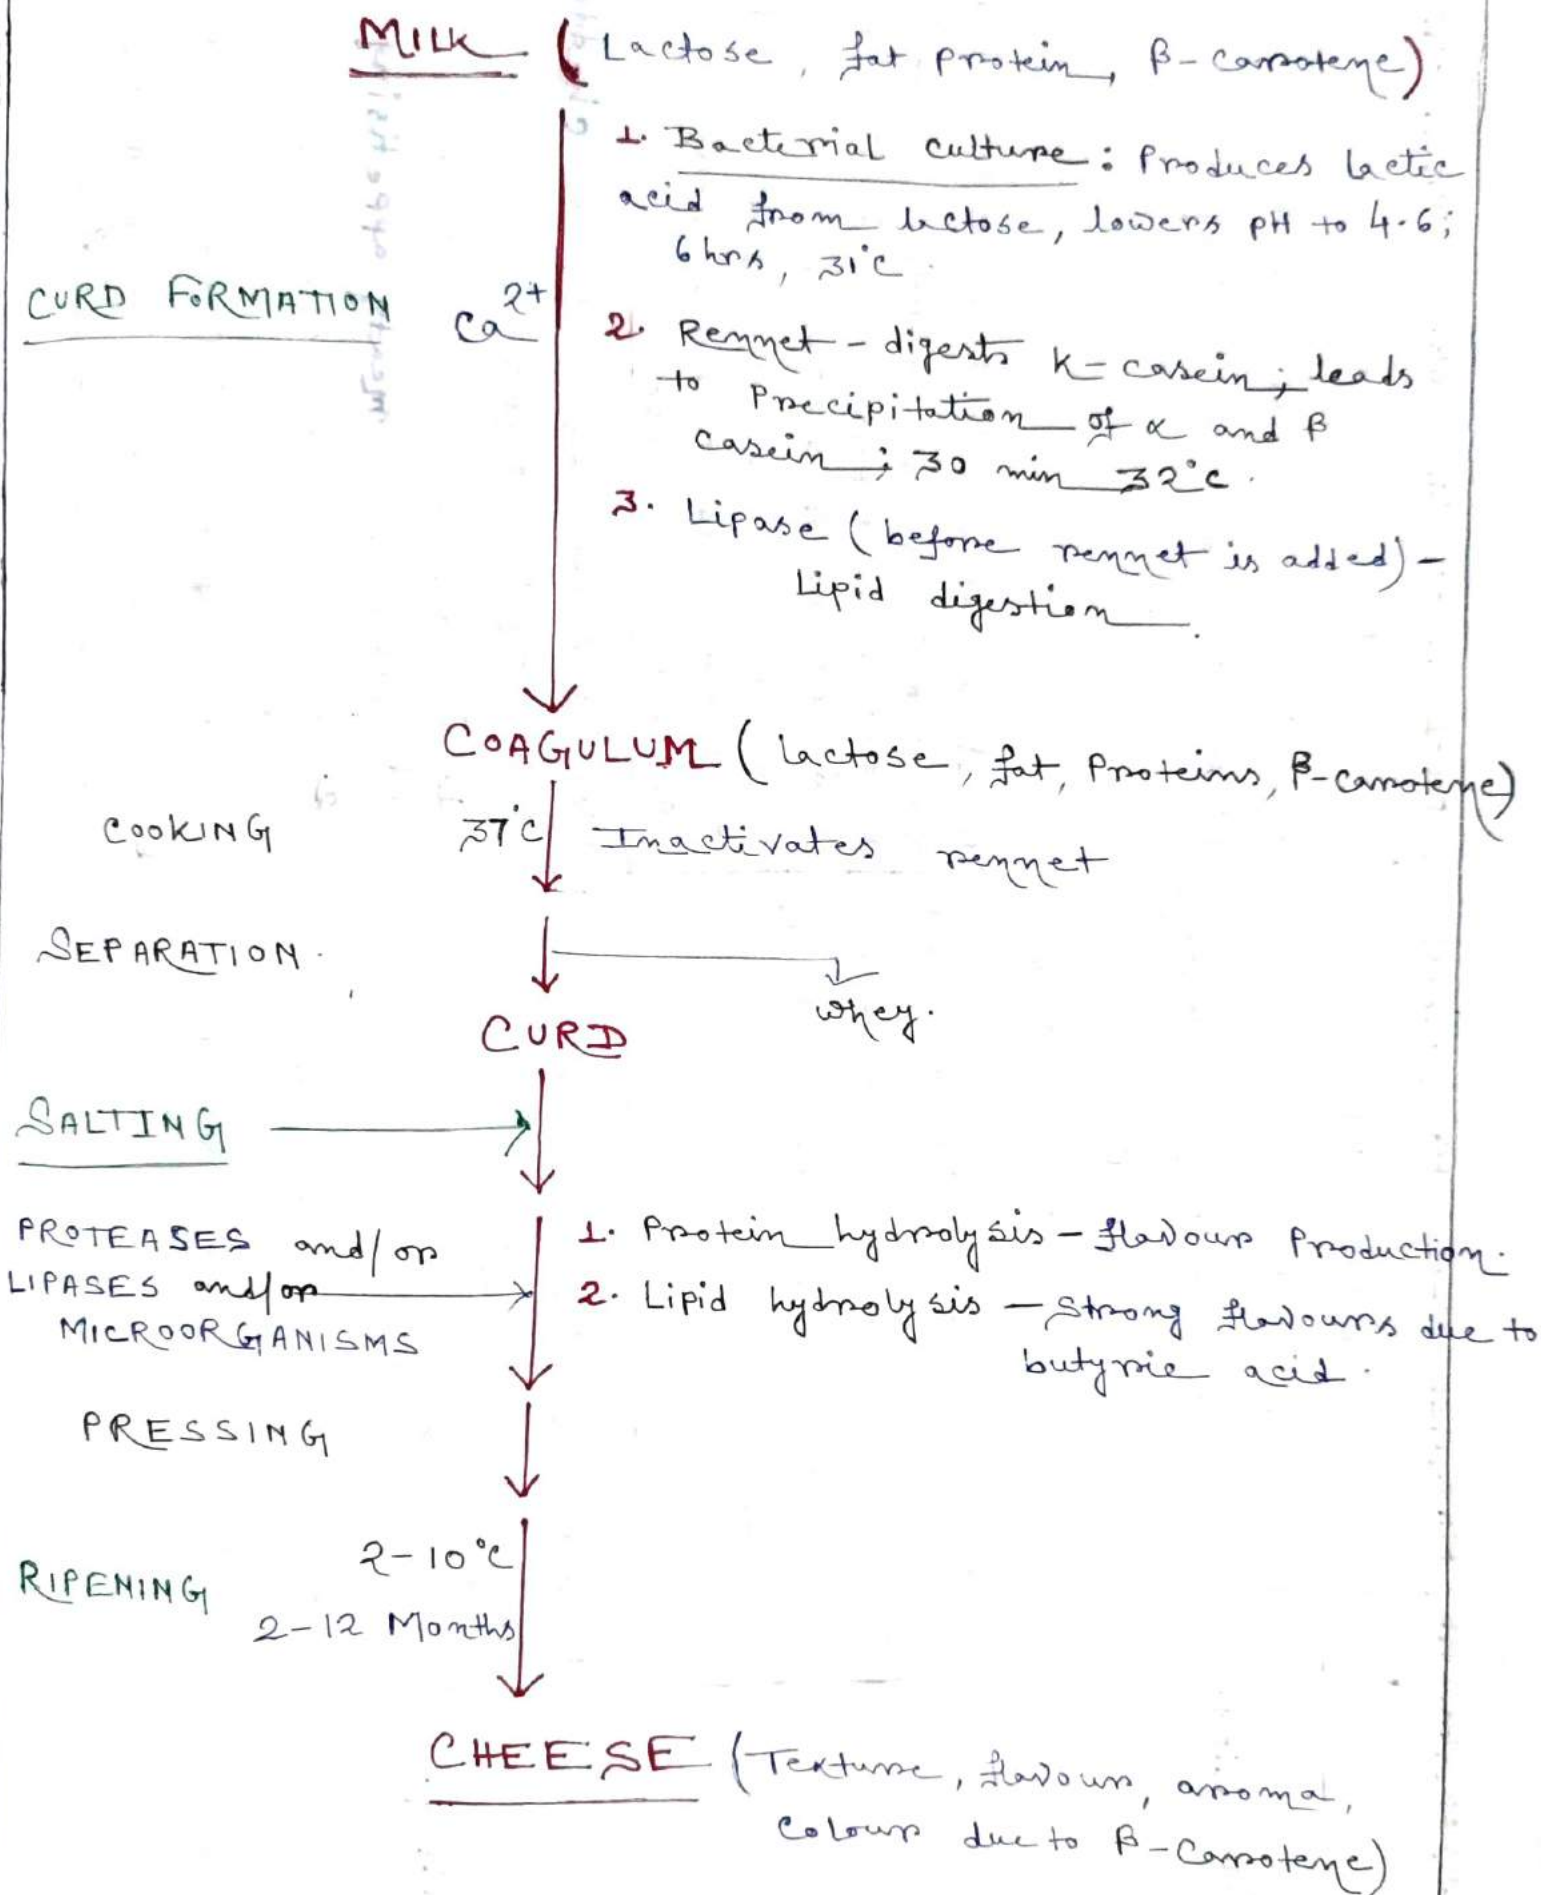 MILK (Lactose, fat protein, β-carotene)
1. Bacterial culture: Produces lactic
acid from lactose, lowers pH to 4.6;
6 hrs, 31°C.
CURD FORMATION
Ca2+
2. Rennet - digests K-casein; leads
to Precipitation of α and β
casein; 30 min 32°C.
3. Lipase (before rennet is added) -
Lipid digestion.
COAGULUM (lactose, fat, Proteins, β-carotene)
COOKING 37°C Inactivates rennet
SEPARATION.
whey.
CURD
SALTING
PROTEASES and/or
LIPASES and/or
MICROORGANISMS
1. Protein hydrolysis - flavour Production.
2. Lipid hydrolysis - Strong flavours due to
butyric acid.
PRESSING
RIPENING
2-10°C
2-12 Months
CHEESE (Texture, flavour, aroma,
Colour due to β-Carotene)